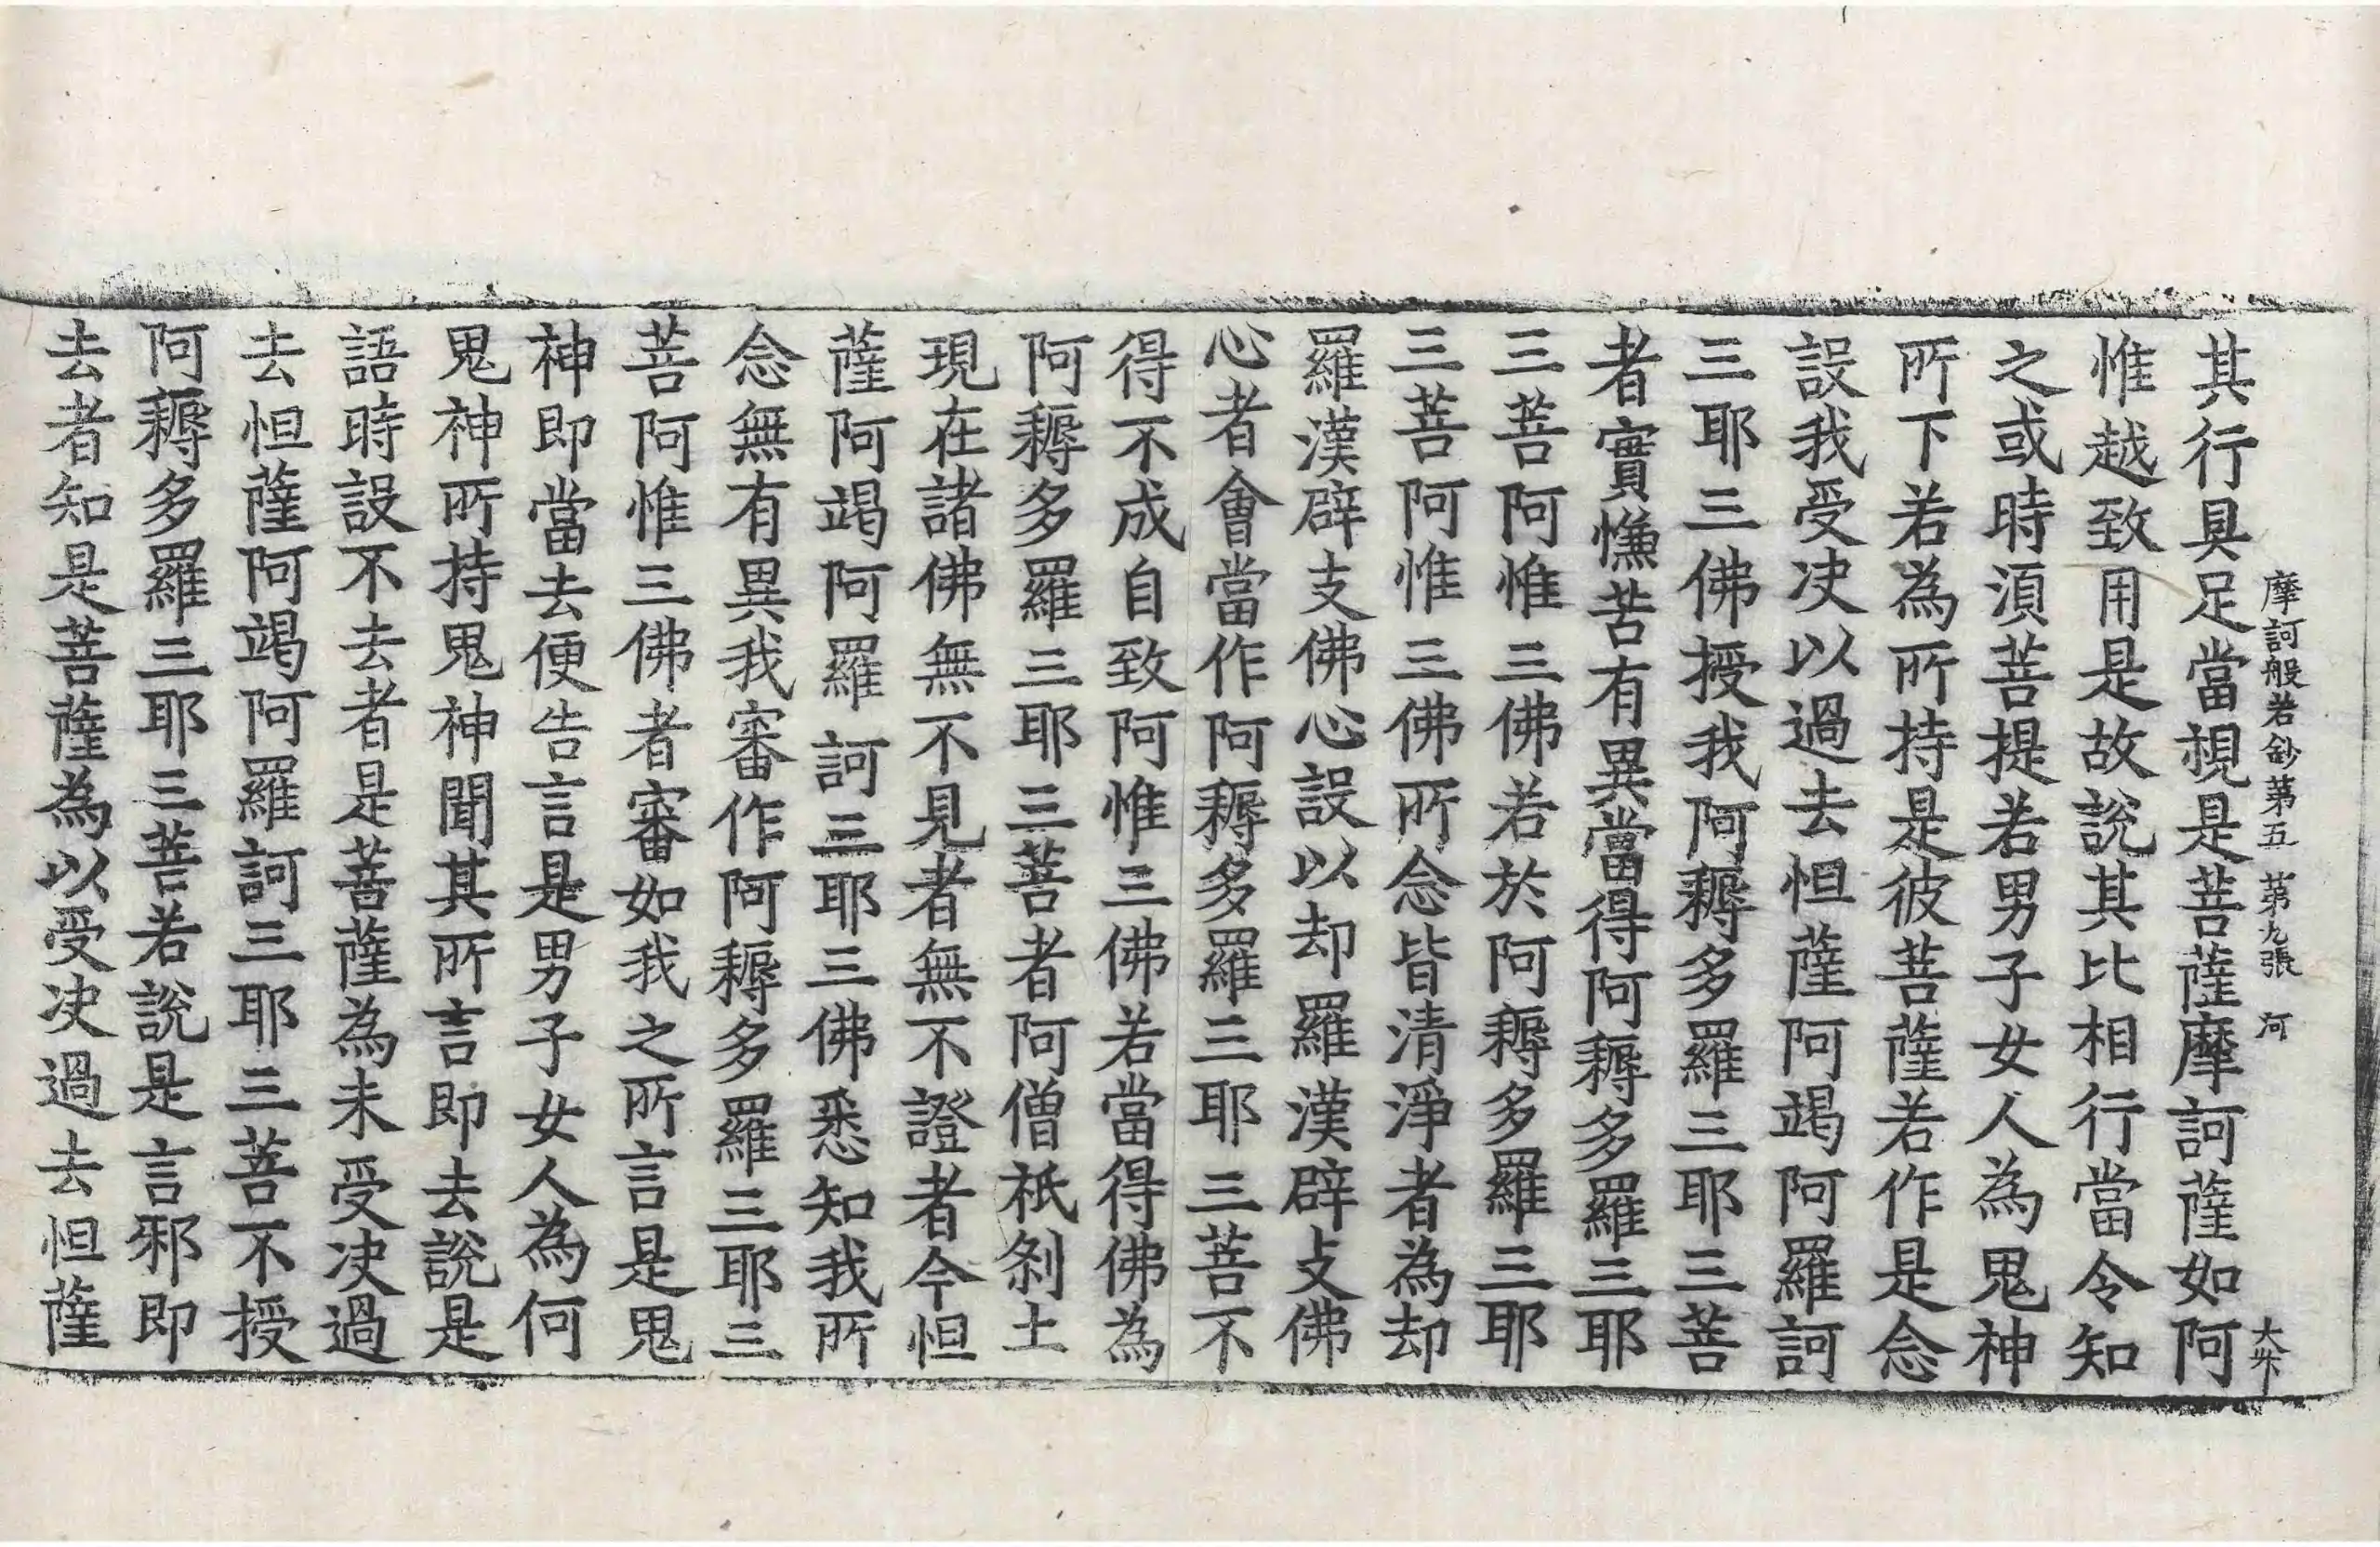 摩訶般若鈔第五 第九張 河
其行具足當視是菩薩摩訶薩如阿
惟越致用是故說其比相行當令知
之或時湏菩提若男子女人為鬼神
所下若為所持是彼菩薩若作是念
設我受决以過去怛薩阿竭阿羅訶
三耶三佛授我阿耨多羅三耶三菩
者實慊苦有異當得阿耨多羅三耶
三菩阿惟三佛若於阿耨多羅三耶
三菩阿惟三佛所念皆清淨者為却
羅漢辟支佛心設以却羅漢辟支佛
心者會當作阿耨多羅三耶三菩不
得不成自致阿惟三佛若當得佛為
阿耨多羅三耶三菩者阿僧祇剎土
現在諸佛無不見者無不證者今怛
薩阿竭阿羅訶三耶三佛悉知我所
念無有異我審作阿耨多羅三耶三
菩阿惟三佛者審如我之所言是鬼
神即當去便告言是男子女人為何
鬼神所持鬼神聞其所言即去說是
語時設不去者是菩薩為未受决過
去怛薩阿竭阿羅訶三耶三菩不授
阿耨多羅三耶三菩若說是言邪即
去者知是菩薩為以受决過去怛薩